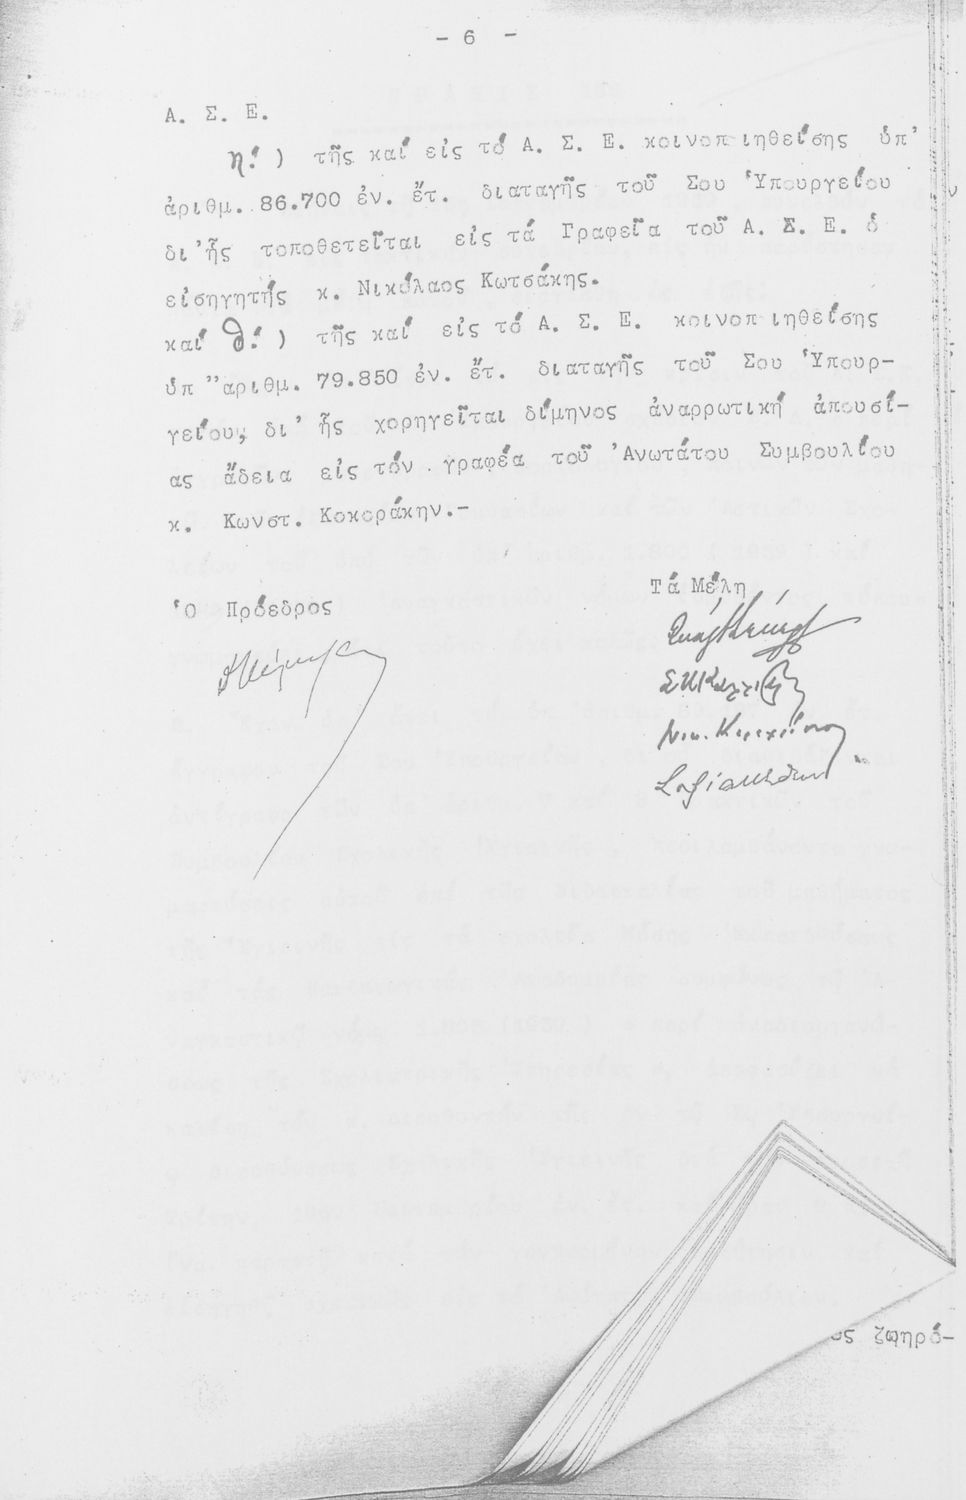 - 6 -
Α. Σ. Ε.
η.) τῆς καί εἰς τό Α. Σ. Ε. κοινοπ ιηθείσης ὑπ'
ἀριθμ. 86.700 ἐν. ἔτ. διαταγῆς τοῦ Σου Ὑπουργείου
δι'ἧς τοποθετεῖται εἰς τά Γραφεῖα τοῦ Α. Σ. Ε. ὁ
εἰσηγητής κ. Νικόλαος Κωτσάκης.
καί θ.) τῆς καί εἰς τό Α. Σ. Ε. κοινοπ ιηθείσης
ὑπ "αριθμ. 79.850 ἐν. ἔτ. διαταγῆς τοῦ Σου Ὑπουρ-
γείου, δι' ἧς χορηγεῖται δίμηνος ἀναρρωτική ἀπουσί-
ας ἄδεια εἰς τόν γραφέα τοῦ Ἀνωτάτου Συμβουλίου
κ. Κωνστ. Κοκοράκην.-
Ὁ Πρόεδρος
Τά Μέλη
ζωηρό-